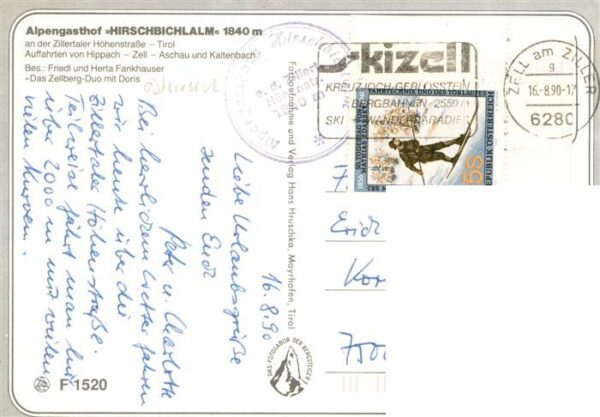 Alpengasthof »HIRSCHBICHLALM« 1840 m
an der Zillertaler Höhenstraße – Tirol
Auffahrten von Hippach – Zell – Aschau und Kaltenbach
Bes.: Friedl und Herta Fankhauser
»Das Zellberg-Duo mit Doris
16.8.90
Liebe Urlaubsgrüße
senden Euch
Peter u. Charlotte
Bei herrlichem Wetter fahren
wir heute über die
Zillertaler Höhenstraße.
Teilweise fährt man hier
über 2000 m mit vielen
vielen Kurven.
F 1520
Farbaufnahme und Verlag Hans Hruschka, Mayrhofen, Tirol
DAS FOTOLABOR DER BERGSTEIGER
skizell
KREUZJOCH-GERLOSSTEIN
BERGBAHNEN 2559 m
SKI + WANDERPARADIES
ZELL am ZILLER
g
16.-8.90-17
6280
FAHRTECHNIK UND DES TORLAUFES
5S
REPUBLIK ÖSTERREICH
F.
Erich
Kor
7500